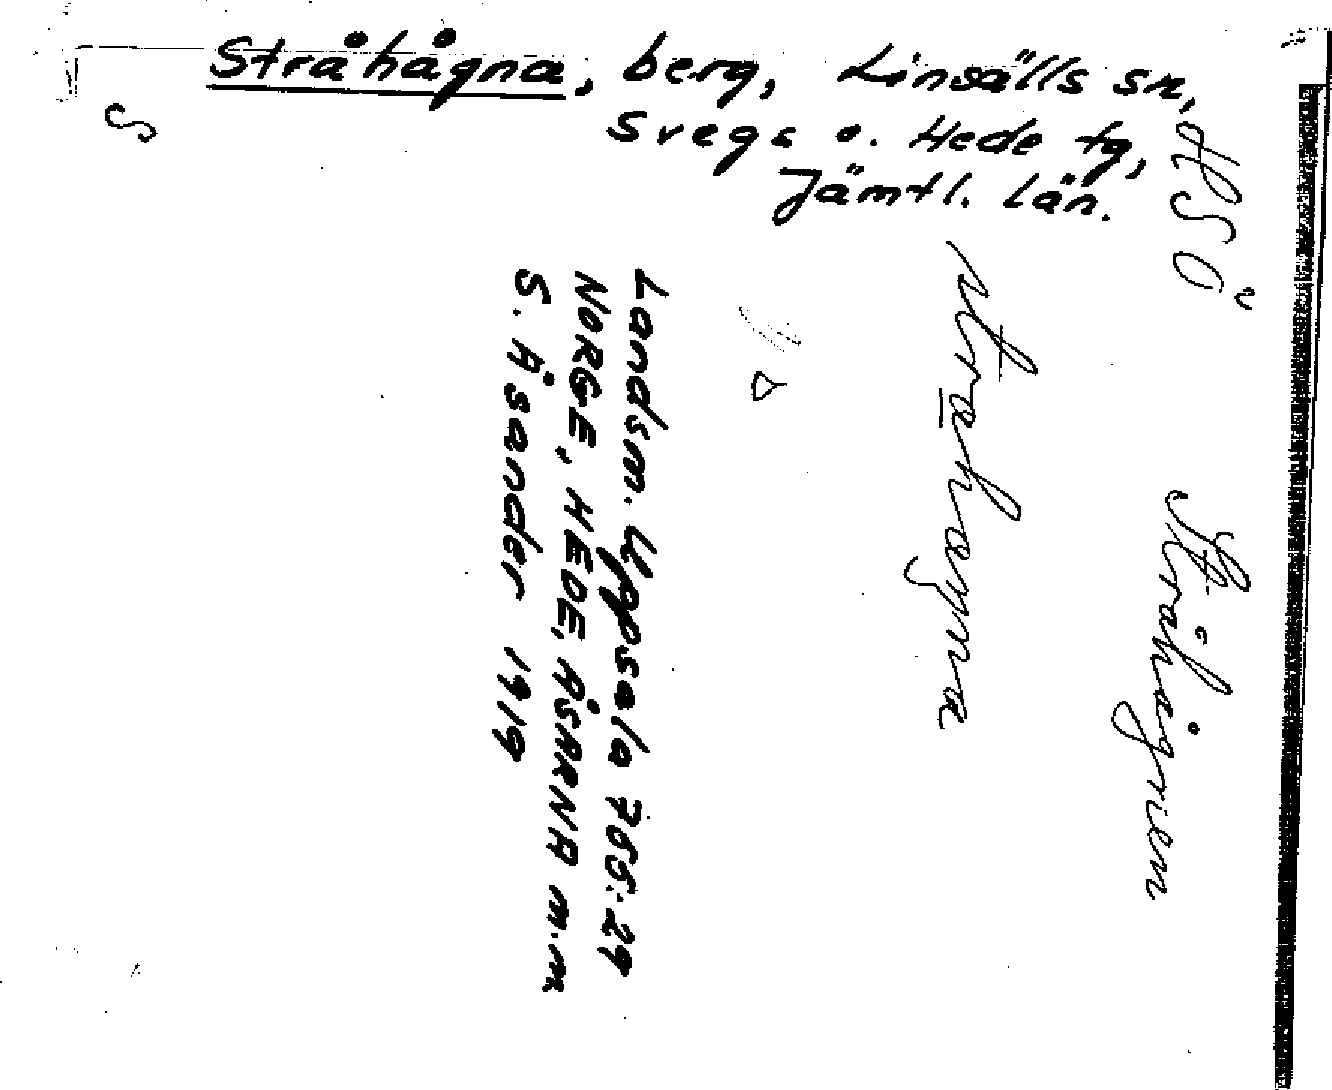 Stråhågna, berg, Linsälls sn,
Svegs o. Hede tg,
Jämtl. län.
S
HSÖ
Stråhågnen
strahagna
Landsm. Uppsala 755:29
NORGE, HEDE, ÅSARNA m.m
S. Åsander 1919